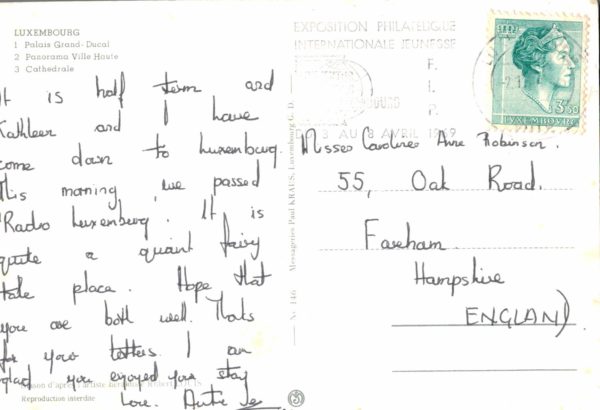 LUXEMBOURG
1 Palais Grand-Ducal
2 Panorama Ville Haute
3 Cathedrale
It is half term and
Kathleen and I have
come down to Luxemburg.
This morning we passed
"Radio Luxemburg". It is
quite a quaint fairy
tale place. Hope that
you are both well. Thats
for your letters. I am
glad you enjoyed your stay
Love.
Reproduction interdite
No 146 Messageries Paul KRAUS, Luxembourg G. D.
EXPOSITION PHILATELIQUE
INTERNATIONALE JEUNESSE
F.
I.
P.
3 AU 8 AVRIL 1969
3F50
LUXEMBOURG
Misses Caroline & Anne Robinson.
55, Oak Road.
Fareham.
Hampshire
ENGLAND